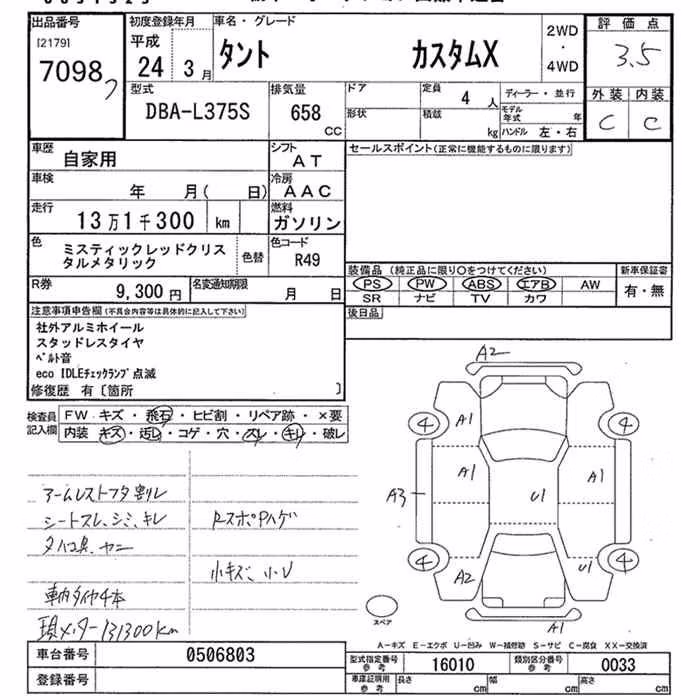 出品番号
[2179]
7098
初度登録年月
平成
24 3月
車名・グレード
タント カスタムX
2WD
・
4WD
評価点
3.5
外装 内装
C C
型式
DBA-L375S
排気量
658
CC
ドア
形状
定員
4人
積載
kg
ディーラー・並行
モデル
年式 年
ハンドル 左・右
車歴
自家用
シフト
AT
車検
年 月( 日)
冷房
AAC
走行
13万1千300 km
燃料
ガソリン
色
ミスティックレッドクリス
タルメタリック
色替
色コード
R49
R券
9,300円
名変通知期限
月 日
セールスポイント(正常に機能するものに限ります)
装備品 (純正品に限り○をつけてください)
PS PW ABS エアB AW
SR ナビ TV カワ
新車保証書
有・無
後日品
注意事項申告欄(不具合内容等は具体的に記入して下さい)
社外アルミホイール
スタッドレスタイヤ
ベルト音
eco IDLEチェックランプ点滅
修復歴 有〔箇所 〕
検査員
記入欄
FW キズ・飛石・ヒビ割・リペア跡・×要
内装 キズ・汚レ・コゲ・穴・スレ・キレ・破レ
アームレストフタ割レ
シートスレ、シミ、キレ
タバコ臭、ヤニ
車内タイヤ4本
現メーター131300km
RスポPハゲ
小キズ、小U
A2
4 A1 4
A1 A1
A3 U1
4 A2 U1 4
A1
スペア
A-キズ E-エクボ U-凹み W-補修跡 S-サビ C-腐食 XX-交換済
車台番号
0506803
登録番号
型式指定番号
参考
16010
類別区分番号
参考
0033
車庫証明用
参考
長さ cm 幅 cm 高さ cm